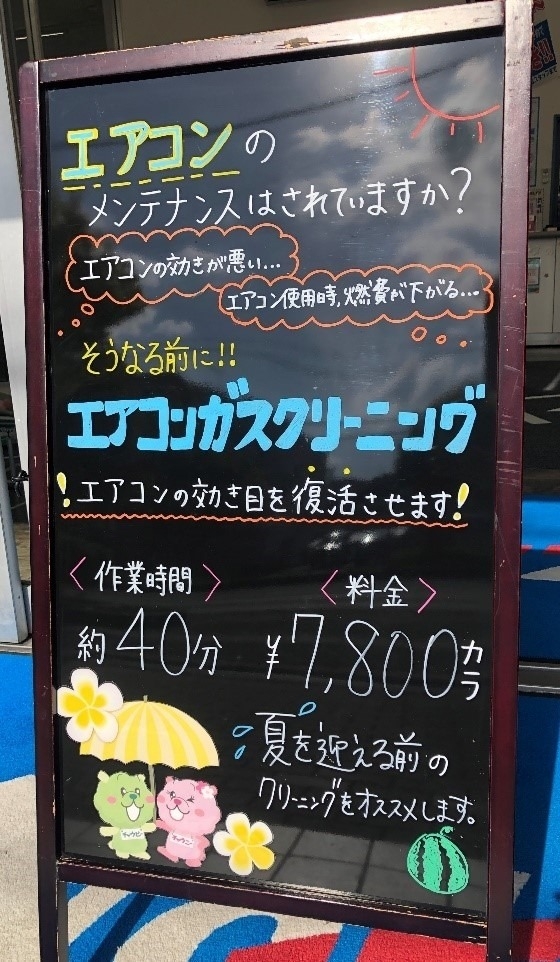 エアコンの
メンテナンスはされていますか?
エアコンの効きが悪い...
エアコン使用時,燃費が下がる...
そうなる前に!!
エアコンガスクリーニング
!エアコンの効き目を復活させます!
〈作業時間〉
約40分
〈料金〉
¥7,800カラ
夏を迎える前の
クリーニングをオススメします。